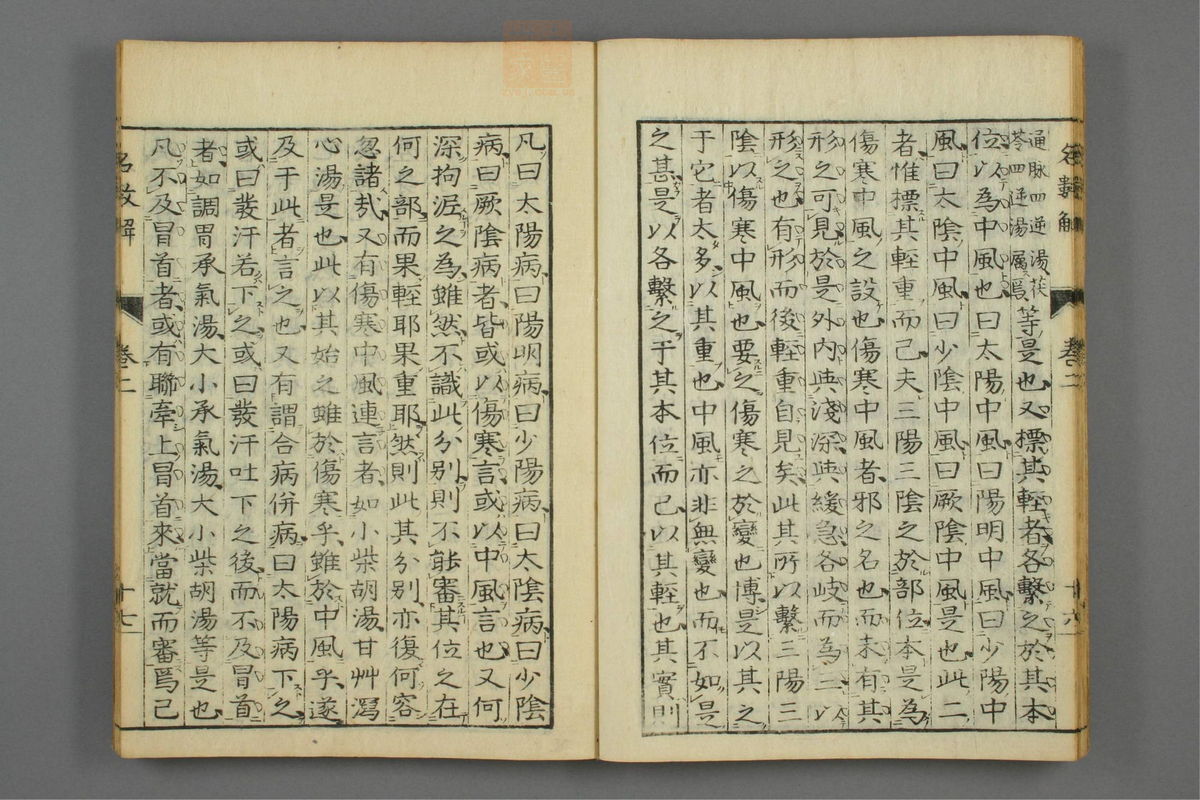 通脉四逆湯茯
苓四逆湯屬焉
等是也又標其輊者各繫之於其本
位以為中風也曰太陽中風曰陽明中風曰少陽中
風曰太陰中風曰少陰中風曰厥陰中風是也此二
者惟標其輊重而已夫三陽三陰之於部位本是為
傷寒中風之設也傷寒中風者邪之名也而未有其
形之可見於是外内與淺深與緩急各岐而為三以
形之也有形而後輊重自見矣此其所以繫三陽三
陰以傷寒中風也要之傷寒之於變也博是以其之
于它者太多以其重也中風亦非無變也而不如是
之甚是以各繫之于其本位而已以其輊也其實則
名數解
卷二
十六
凡曰太陽病曰陽明病曰少陽病曰太陰病曰少陰
病曰厥陰病者皆或以傷寒言或以中風言也又何
深拘泥之為雖然不識此分别則不能審其位之在
何之部而果輊耶果重耶然則此其分别亦復何容
忽諸哉又有傷寒中風連言者如小柴胡湯甘艸瀉
心湯是也此以其始之雖於傷寒乎雖於中風乎遂
及于此者言之也又有謂合病併病曰太陽病下之
或曰發汗若下之或曰發汗吐下之後而不及冒首
者如調胃承氣湯大小承氣湯大小柴胡湯等是也
凡不及冒首者或有聯牽上冒首來當就而審焉已
名數解
卷二
十七